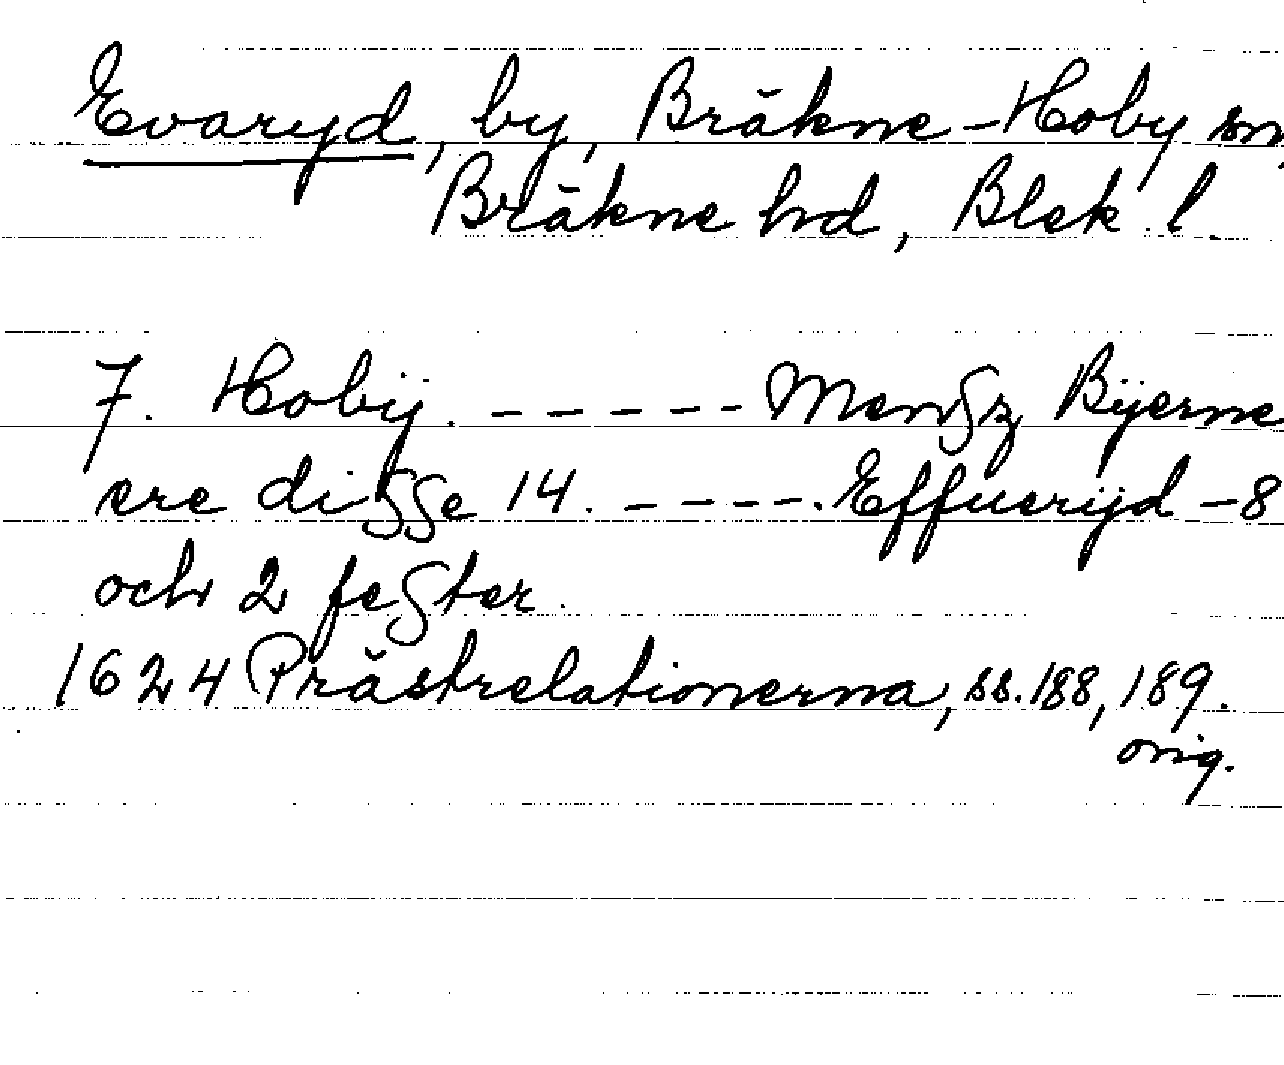 Evaryd, by, Bräkne-Hoby sn,
Bräkne hd, Blek. l.
7. Hobÿ. ----- Menſz Bÿerne
ere diſſe 14. ----. Effuerÿd - 8
och 2 feſter.
1624 Prästrelationerna, ss. 188, 189.
orig.